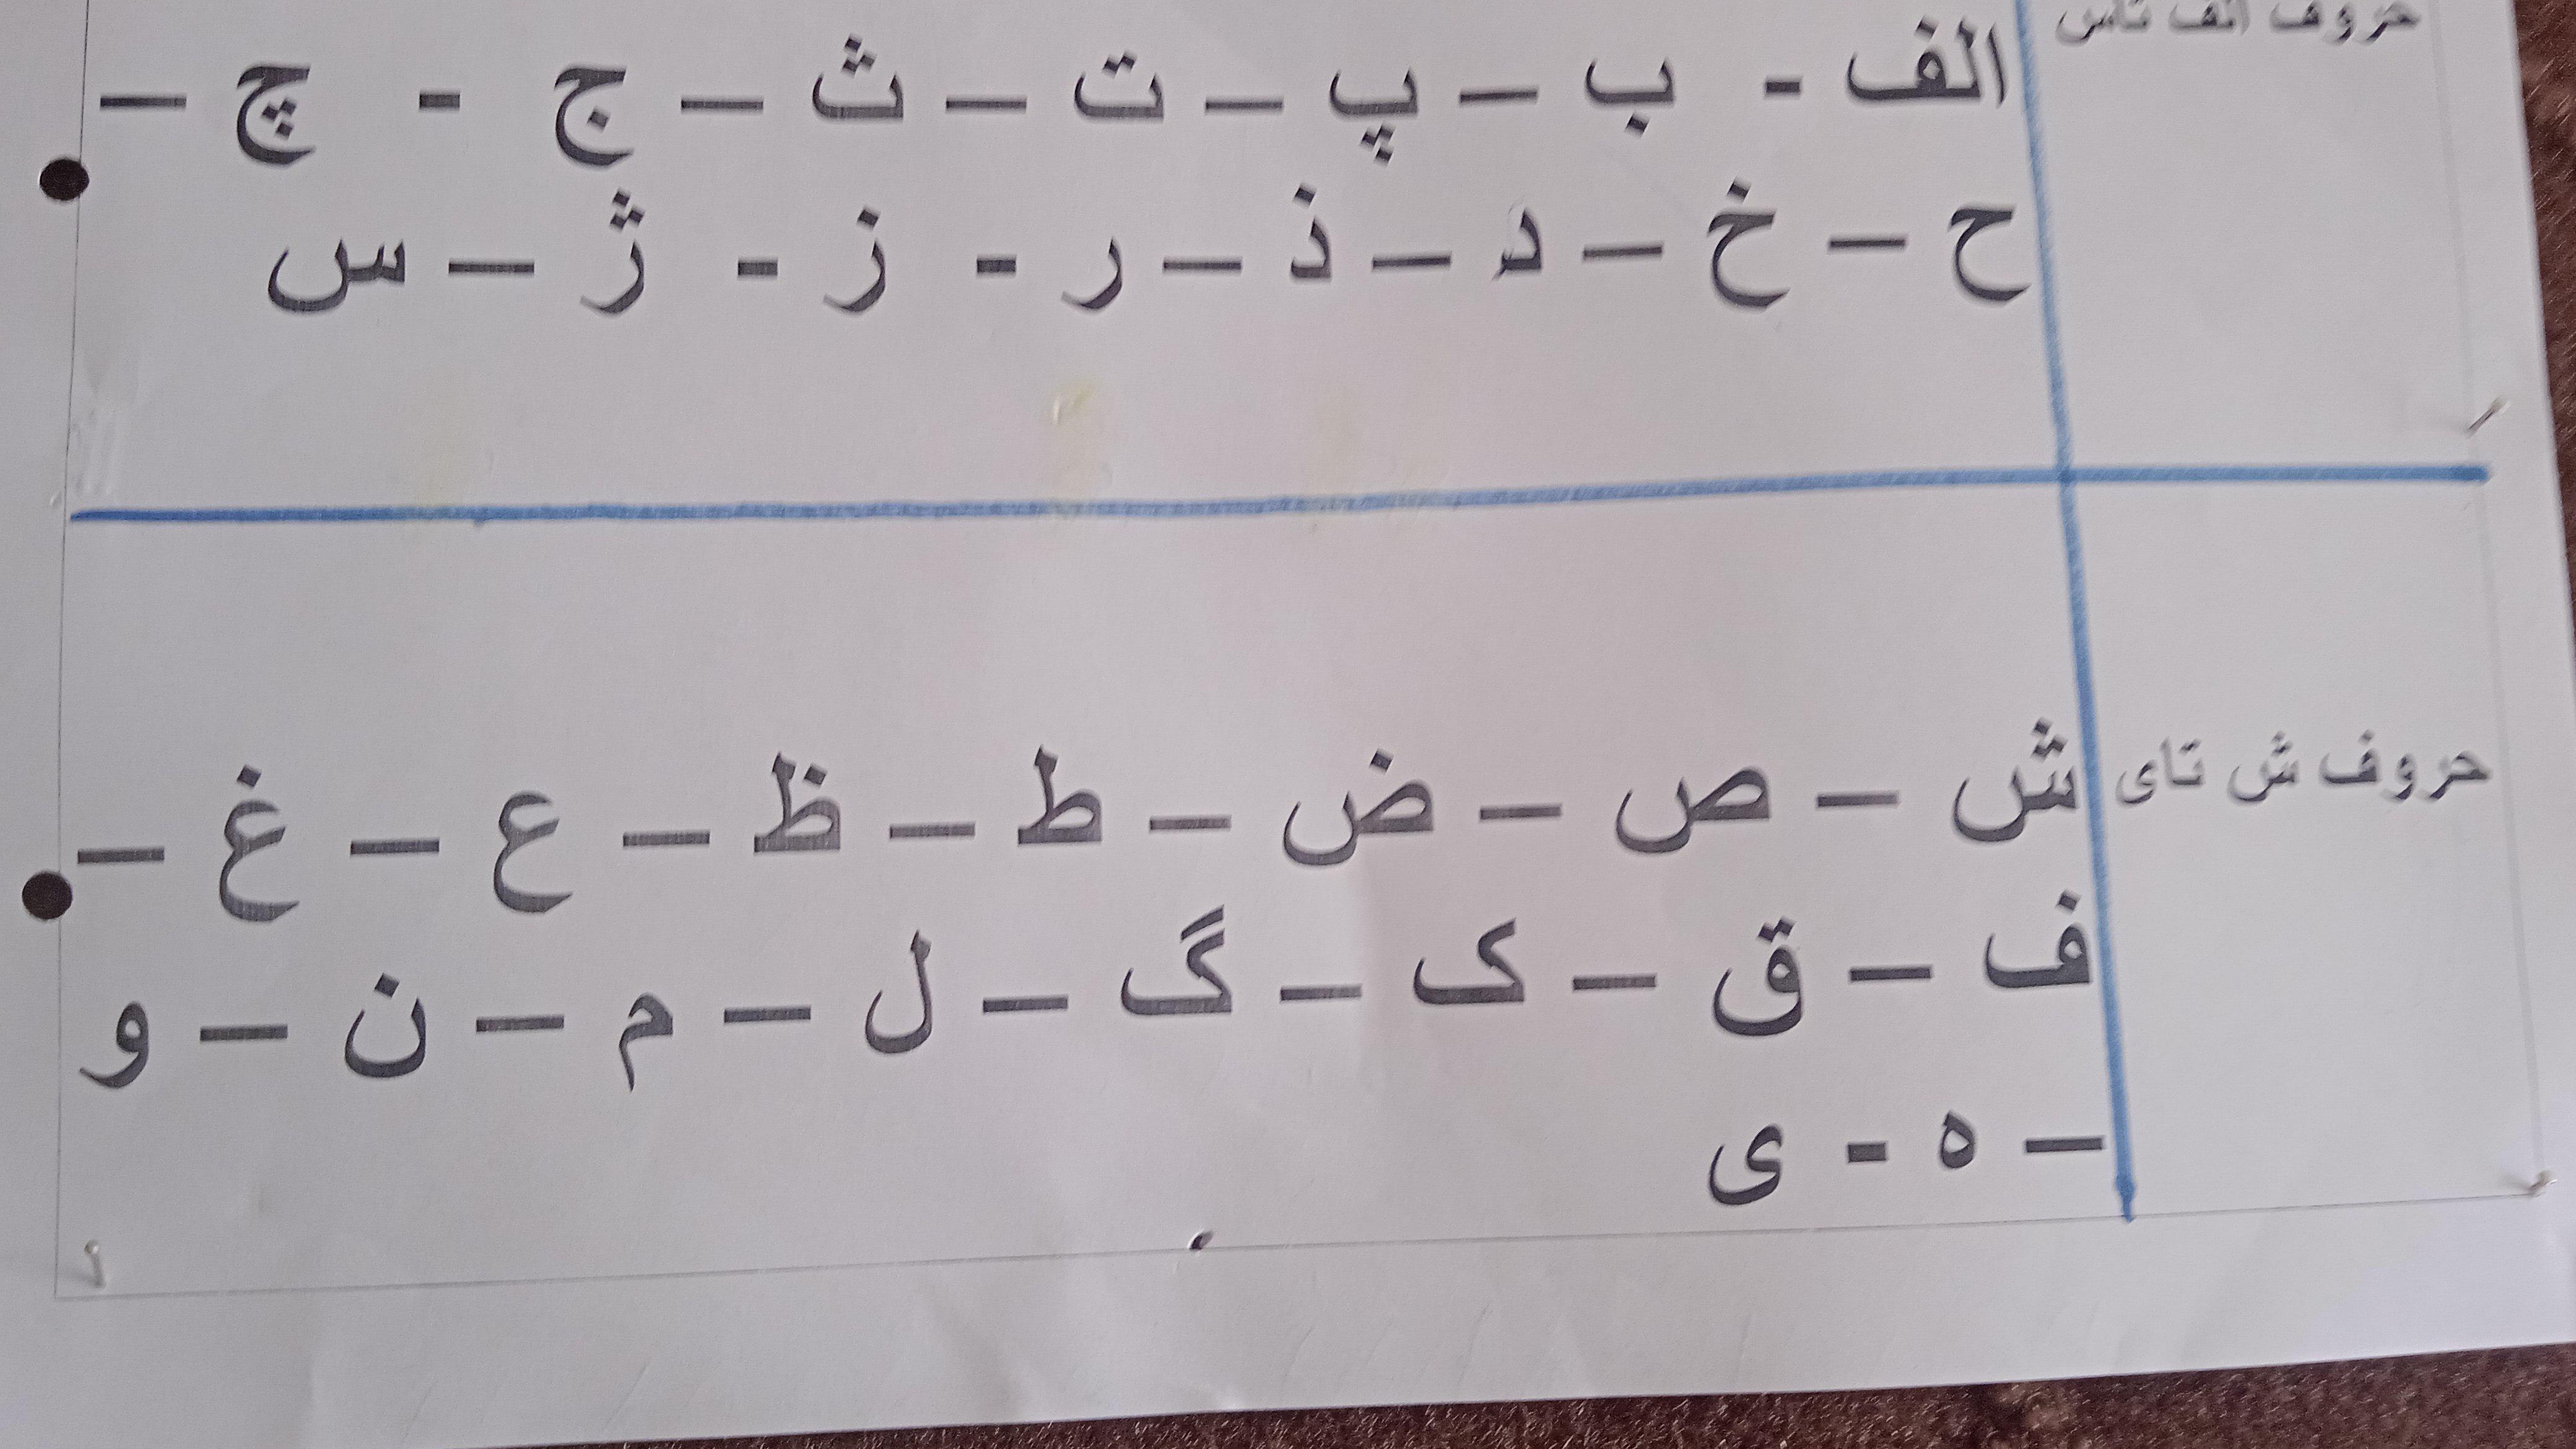 حروف الف تاس
الف - ب – پ – ت – ث – ج - چ –
ح – خ – د – ذ – ر - ز - ژ – س
حروف ش تای
ش – ص – ض – ط – ظ – ع – غ –
ف – ق – ک – گ – ل – م – ن – و
– ه - ی